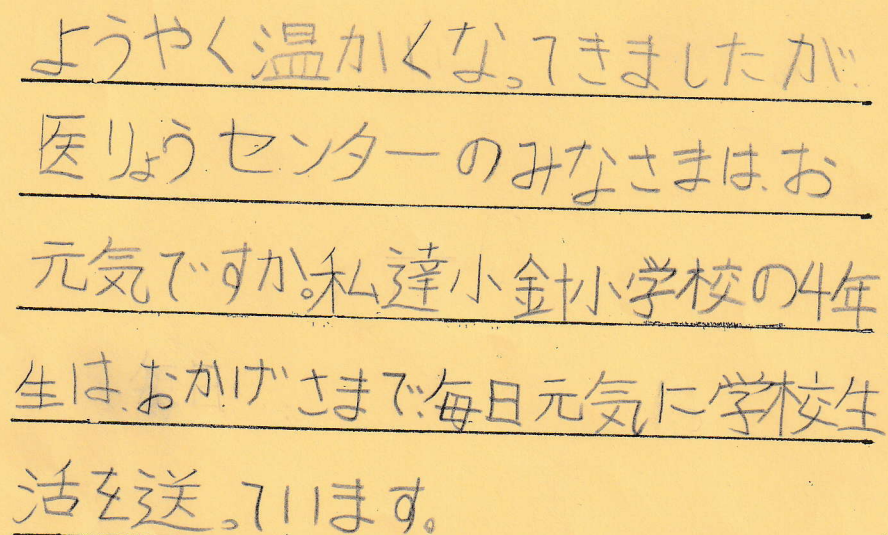 ようやく温かくなってきましたが
医りょうセンターのみなさまは、お
元気ですか。私達小針小学校の4年
生は、おかげさまで、毎日元気に学校生
活を送っています。